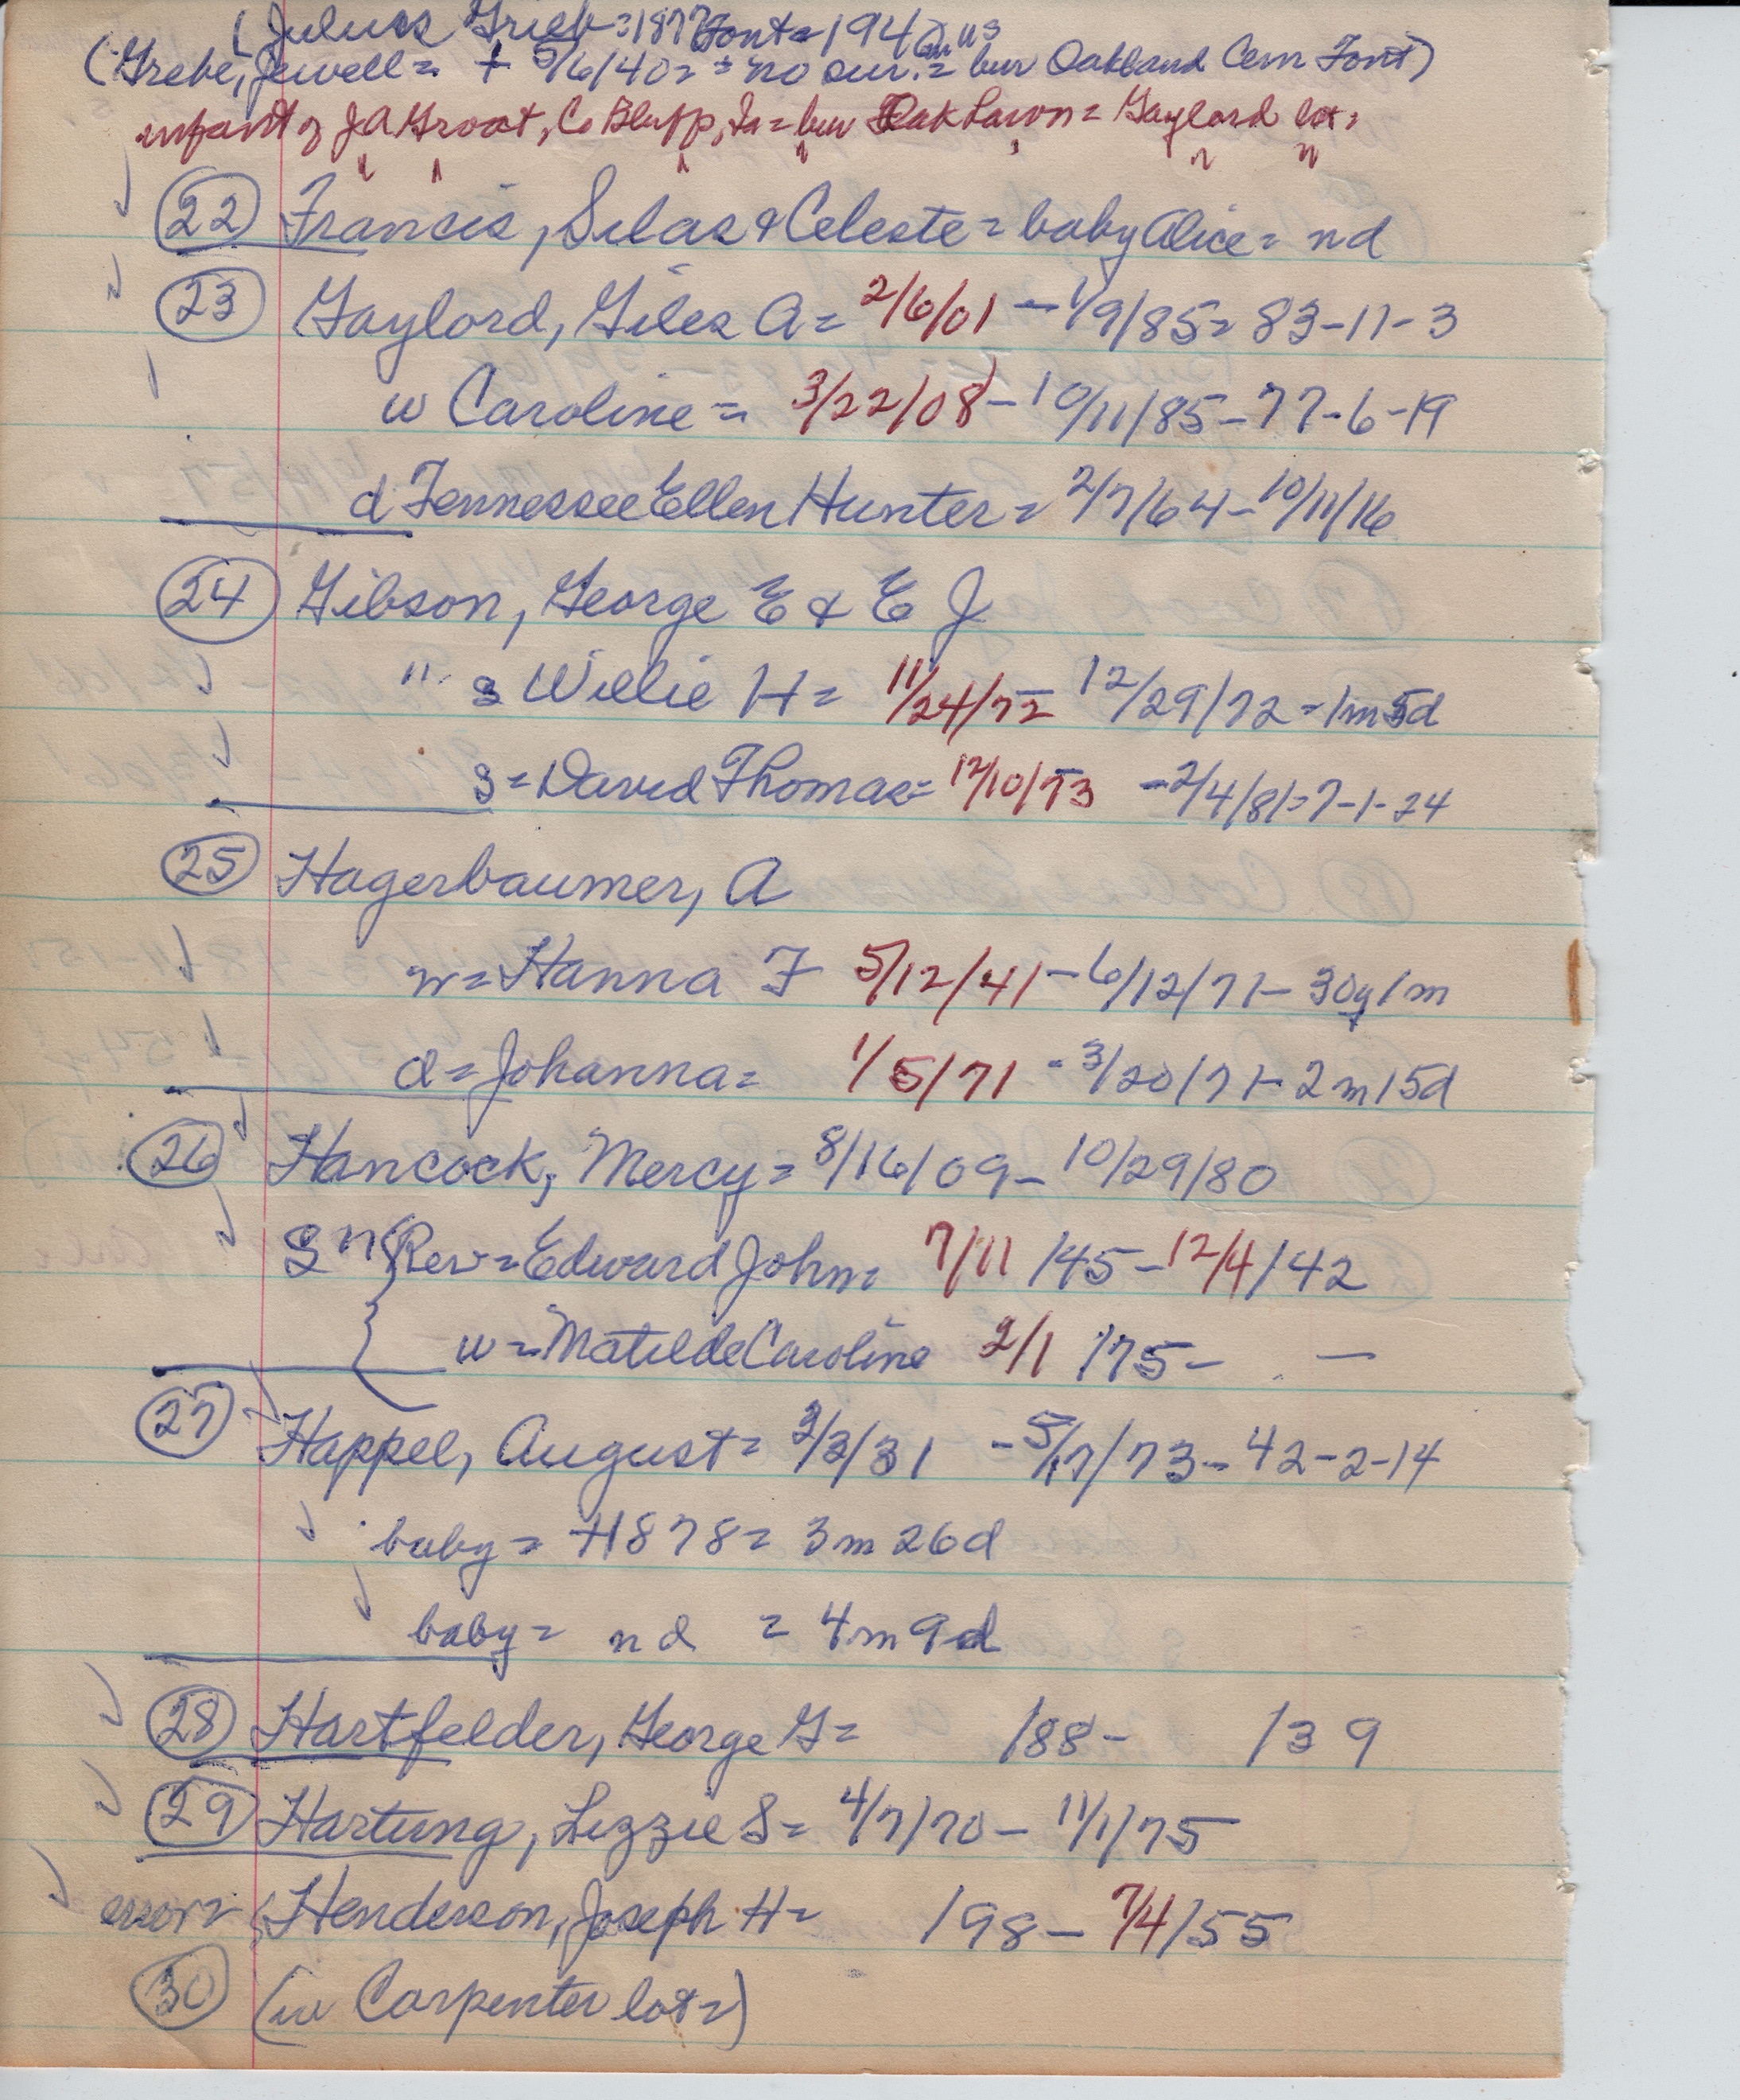 (Julius Grieb = 1877 Font = 194
(Grebe, Jewell = + 5/6/40 = = no sur. = bur Oakland Cem Font)
infant of J A Groat, Co Bluff, Ia = bur Oak Lawn = Gaylord lot =
22 Francis, Silas & Celeste = baby Alice = nd
23 Gaylord, Giles A = 2/6/01 - 1/9/85 = 83-11-3
w Caroline = 3/22/08 - 10/11/85 - 77-6-19
d Tennessee Ellen Hunter = 2/7/64 - 10/11/16
24 Gibson, George E & E J
" s Willie H = 11/24/72 12/29/72 = 1m5d
s = David Thomas = 12/10/73 - 2/4/81 = 7-1-24
25 Hagerbaumer, A
w = Hanna F 5/12/41 - 6/12/71 - 30y1m
d = Johanna = 1/5/71 - 3/20/71 - 2m15d
26 Hancock, Mercy = 8/16/09 - 10/29/80
S {Rev = Edward John = 7/11/45 - 12/4/42
{ w = Matilde Caroline 2/1/75 - -
27 Happel, August = 3/3/31 - 5/17/73 - 42-2-14
baby = +1878 = 3m26d
baby = nd = 4m9d
28 Hartfelder, George G = /88 - /39
29 Hartung, Lizzie S = 4/7/70 - 11/1/75
error = (Henderson, Joseph H = /98 - 7/4/55
30 (in Carpenter lot =)